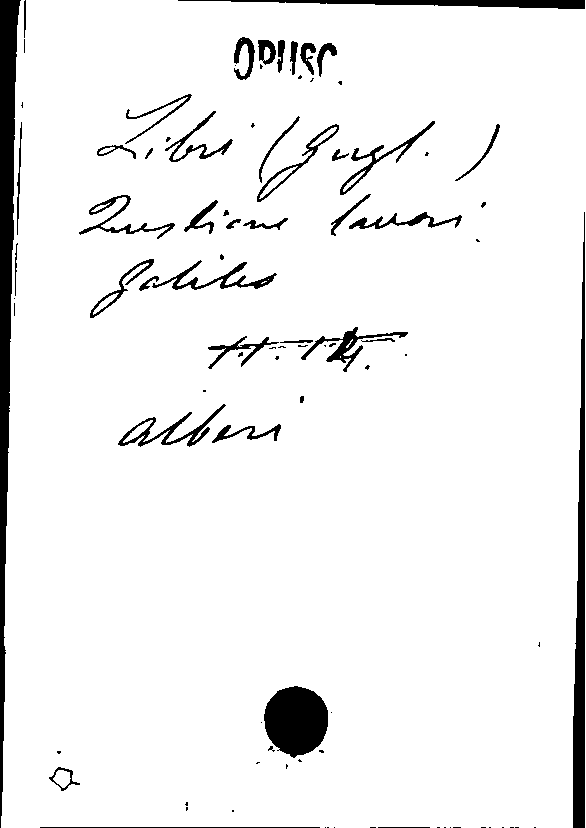 OPUSC.
Libri (Gugl.)
Questione lavori
Galileo
Alberi